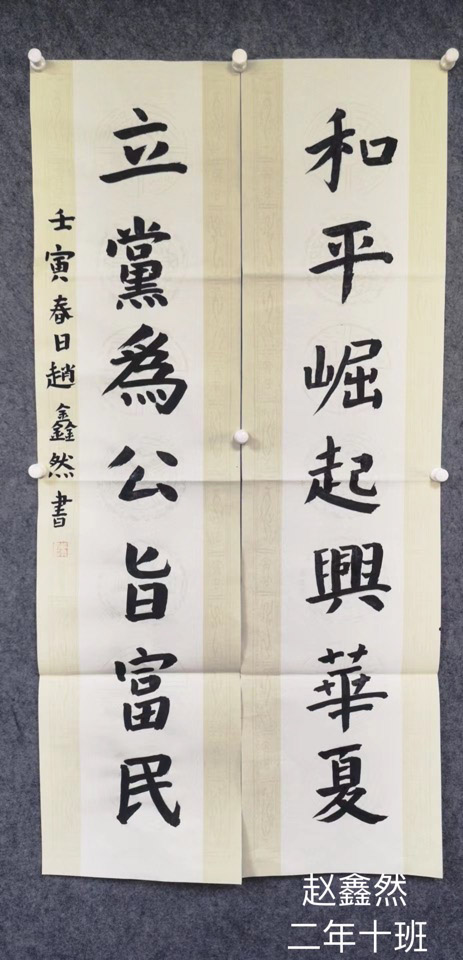 和平崛起興華夏
立黨為公旨富民
壬寅春日趙鑫然書
赵鑫然
二年十班